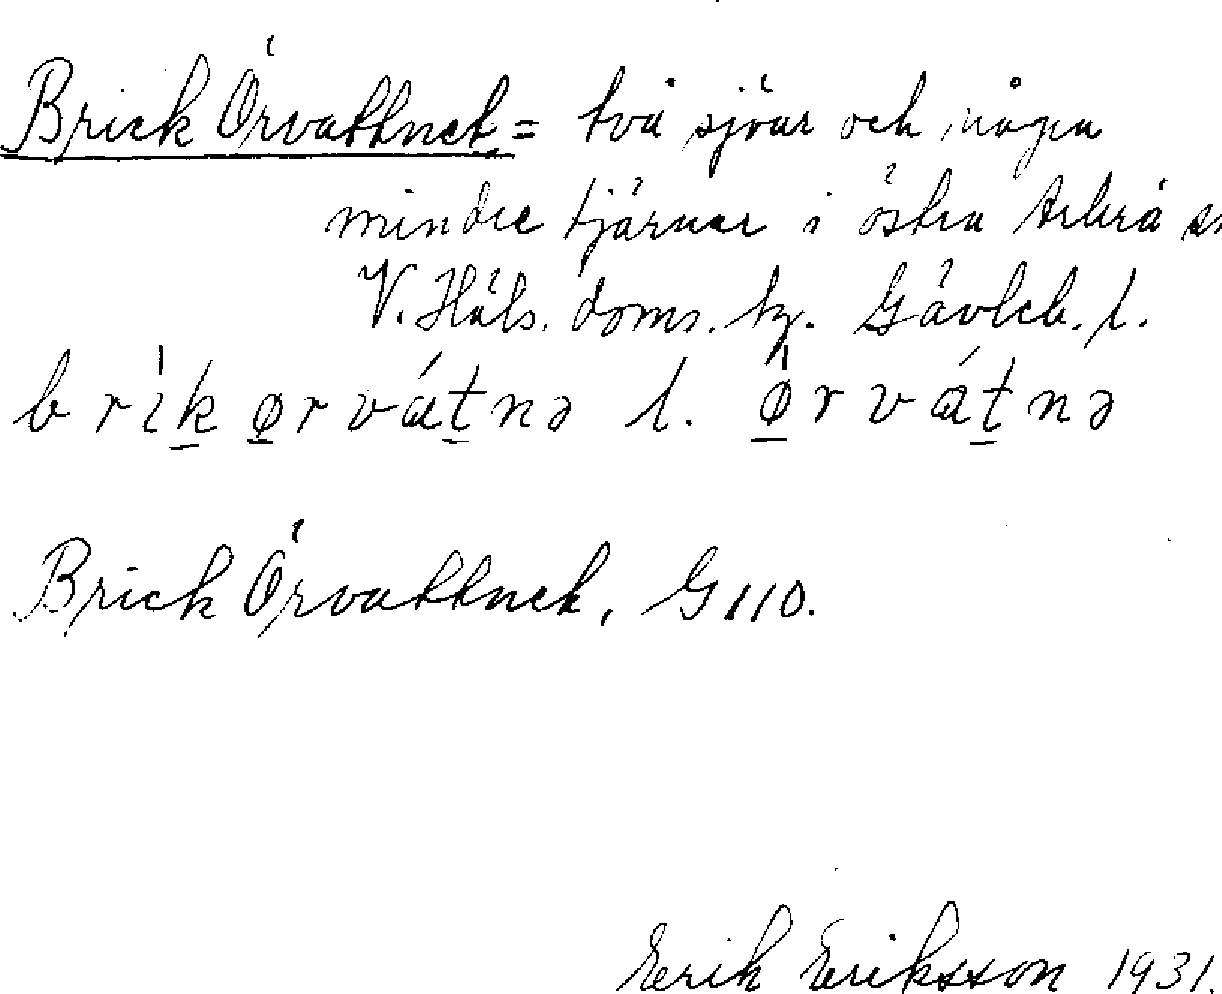 Brick Örvattnet = två sjöar och några
mindre tjärnar i östra Arbrå s
V. Häls. doms. tg. Gävleb. l.
brìk ørvátnə l. ø̀rvátnə
Brick Örvattnet, G110.
Erik Eriksson 1931.